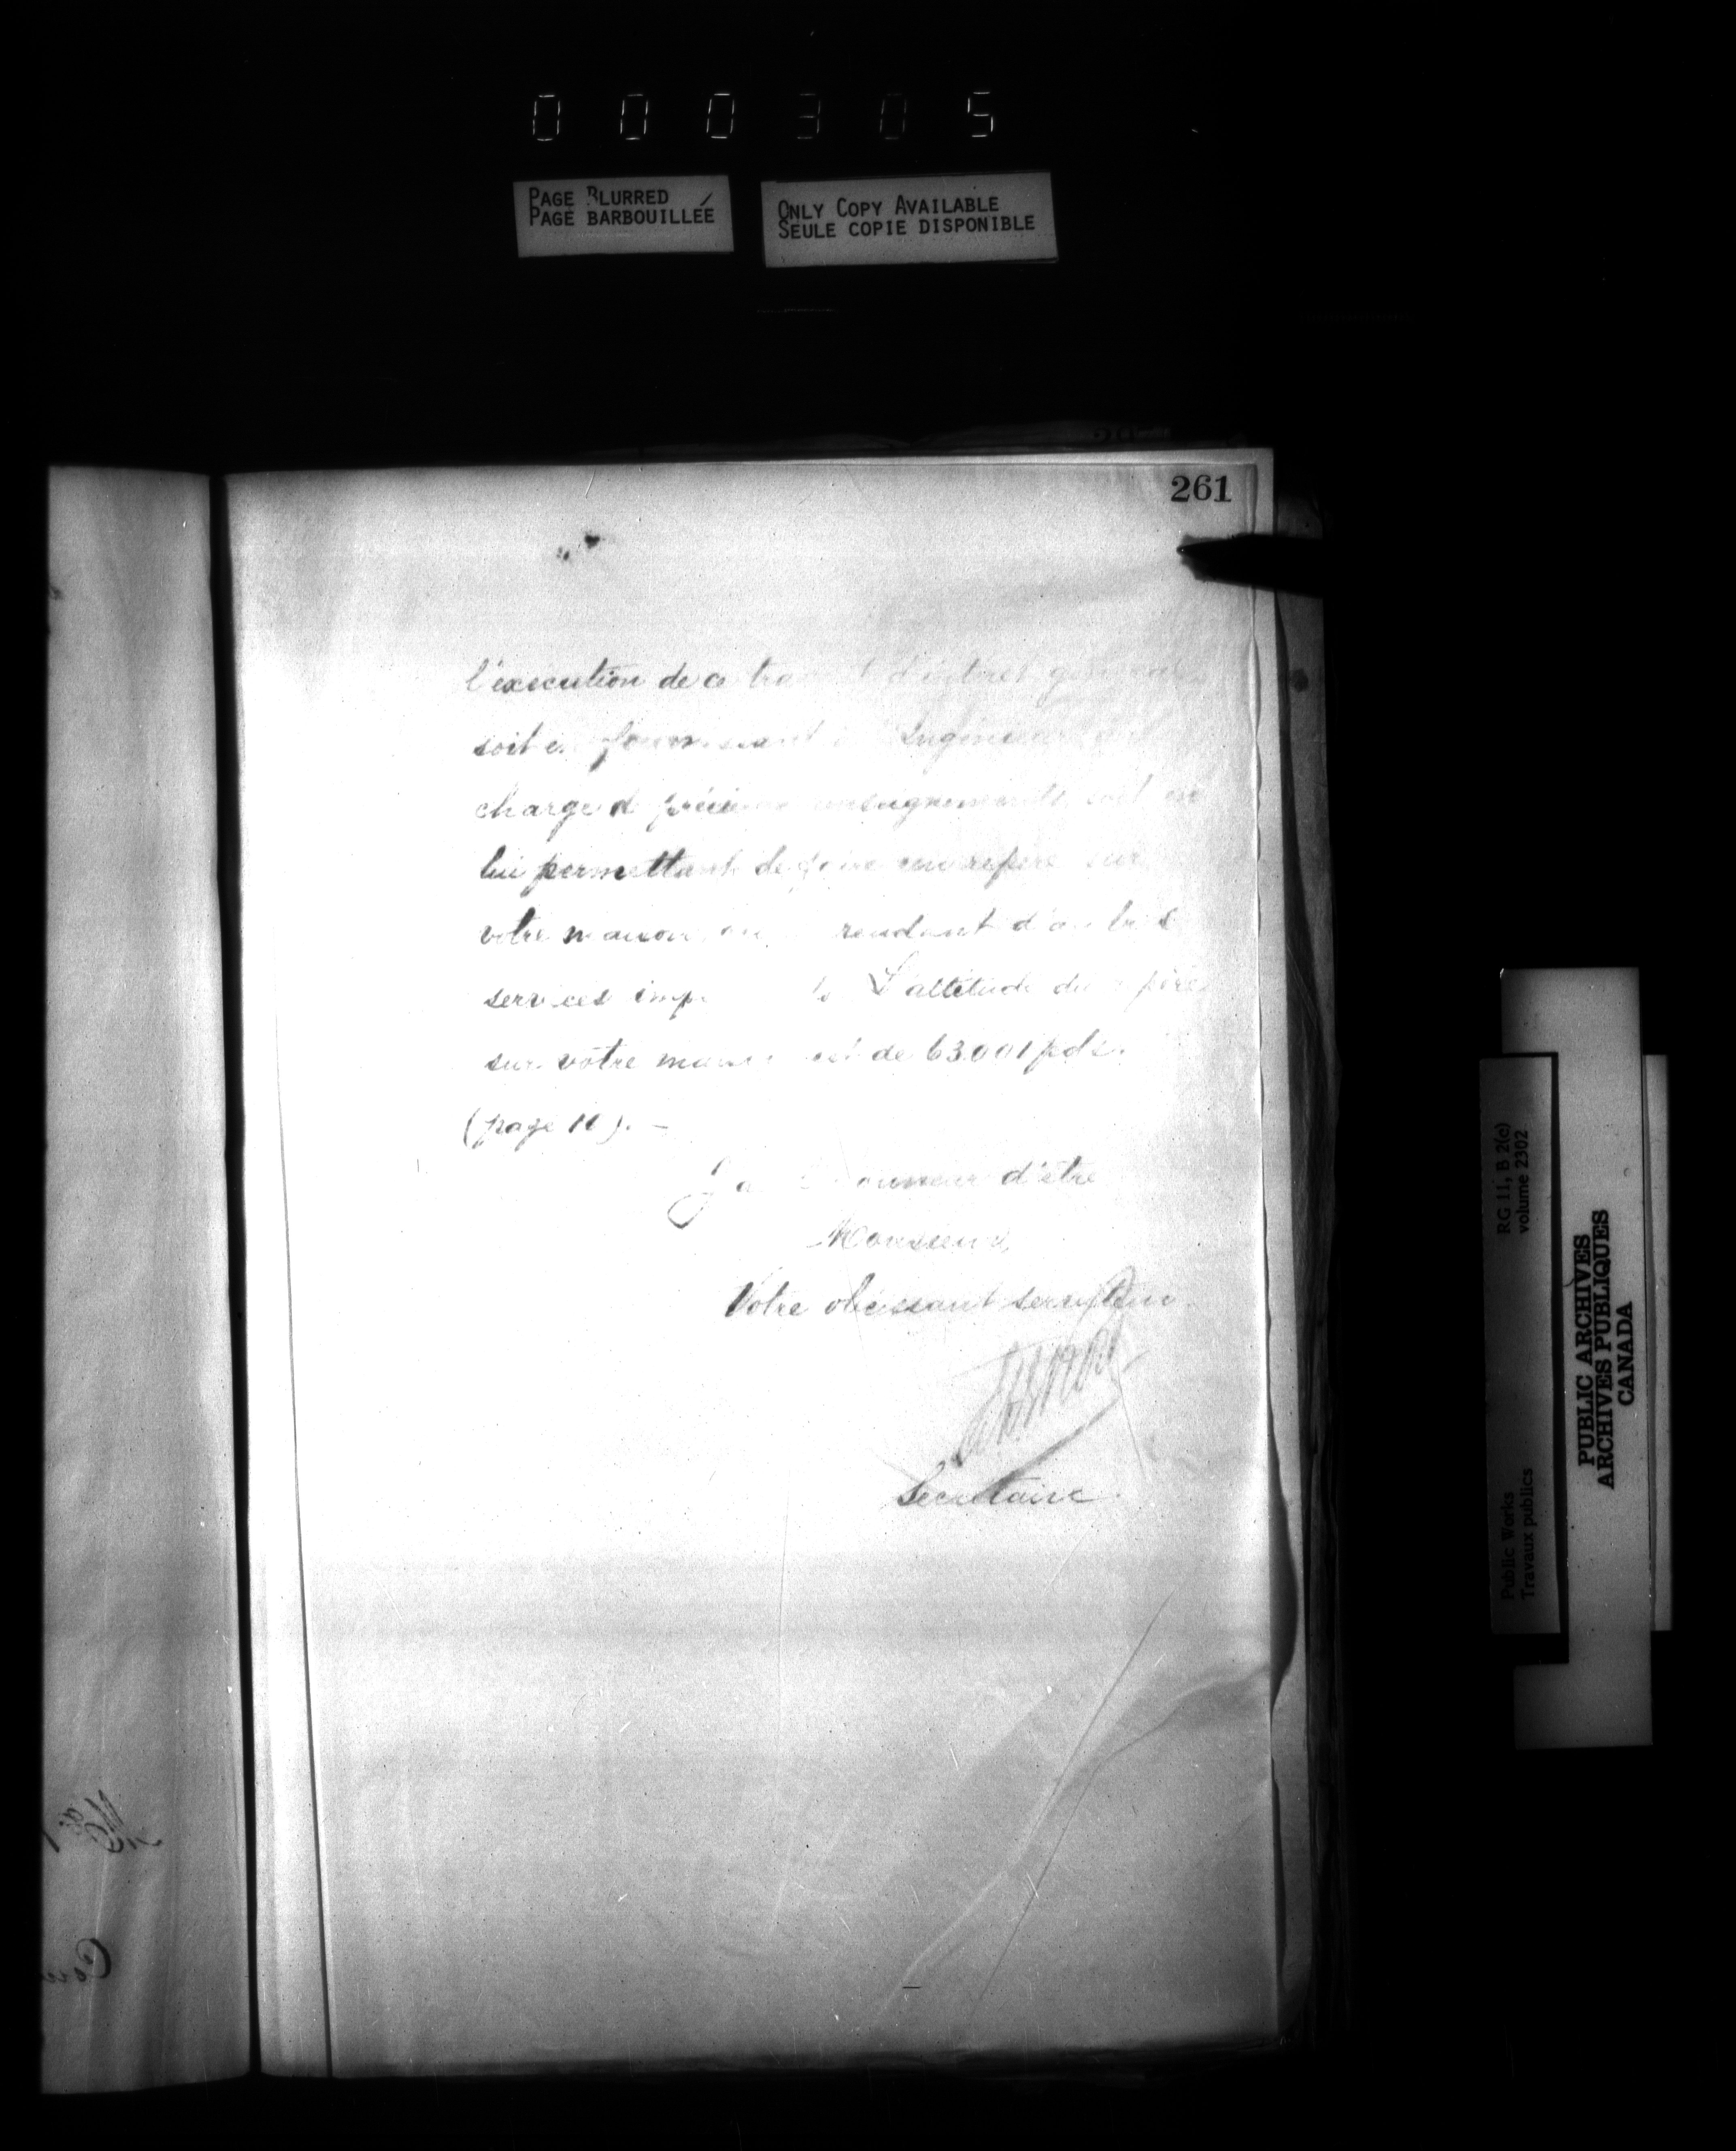 000305
PAGE BLURRED
PAGE BARBOUILLÉE
ONLY COPY AVAILABLE
SEULE COPIE DISPONIBLE
261
l'exécution de ce travail d'intérêt général,
soit en fournissant à l'Ingénieur en
charge de précieux renseignements, soit en
lui permettant de faire un repère sur
votre maison, ou rendant d'autres
services L'altitude du repère
sur votre maison est de 63.001 pds.
(page 10). —
J'ai l'honneur d'être
Monsieur,
Votre obéissant serviteur
Secrétaire.
RG 11, B 2(c)
volume 2302
Public Works
Travaux publics
PUBLIC ARCHIVES
ARCHIVES PUBLIQUES
CANADA